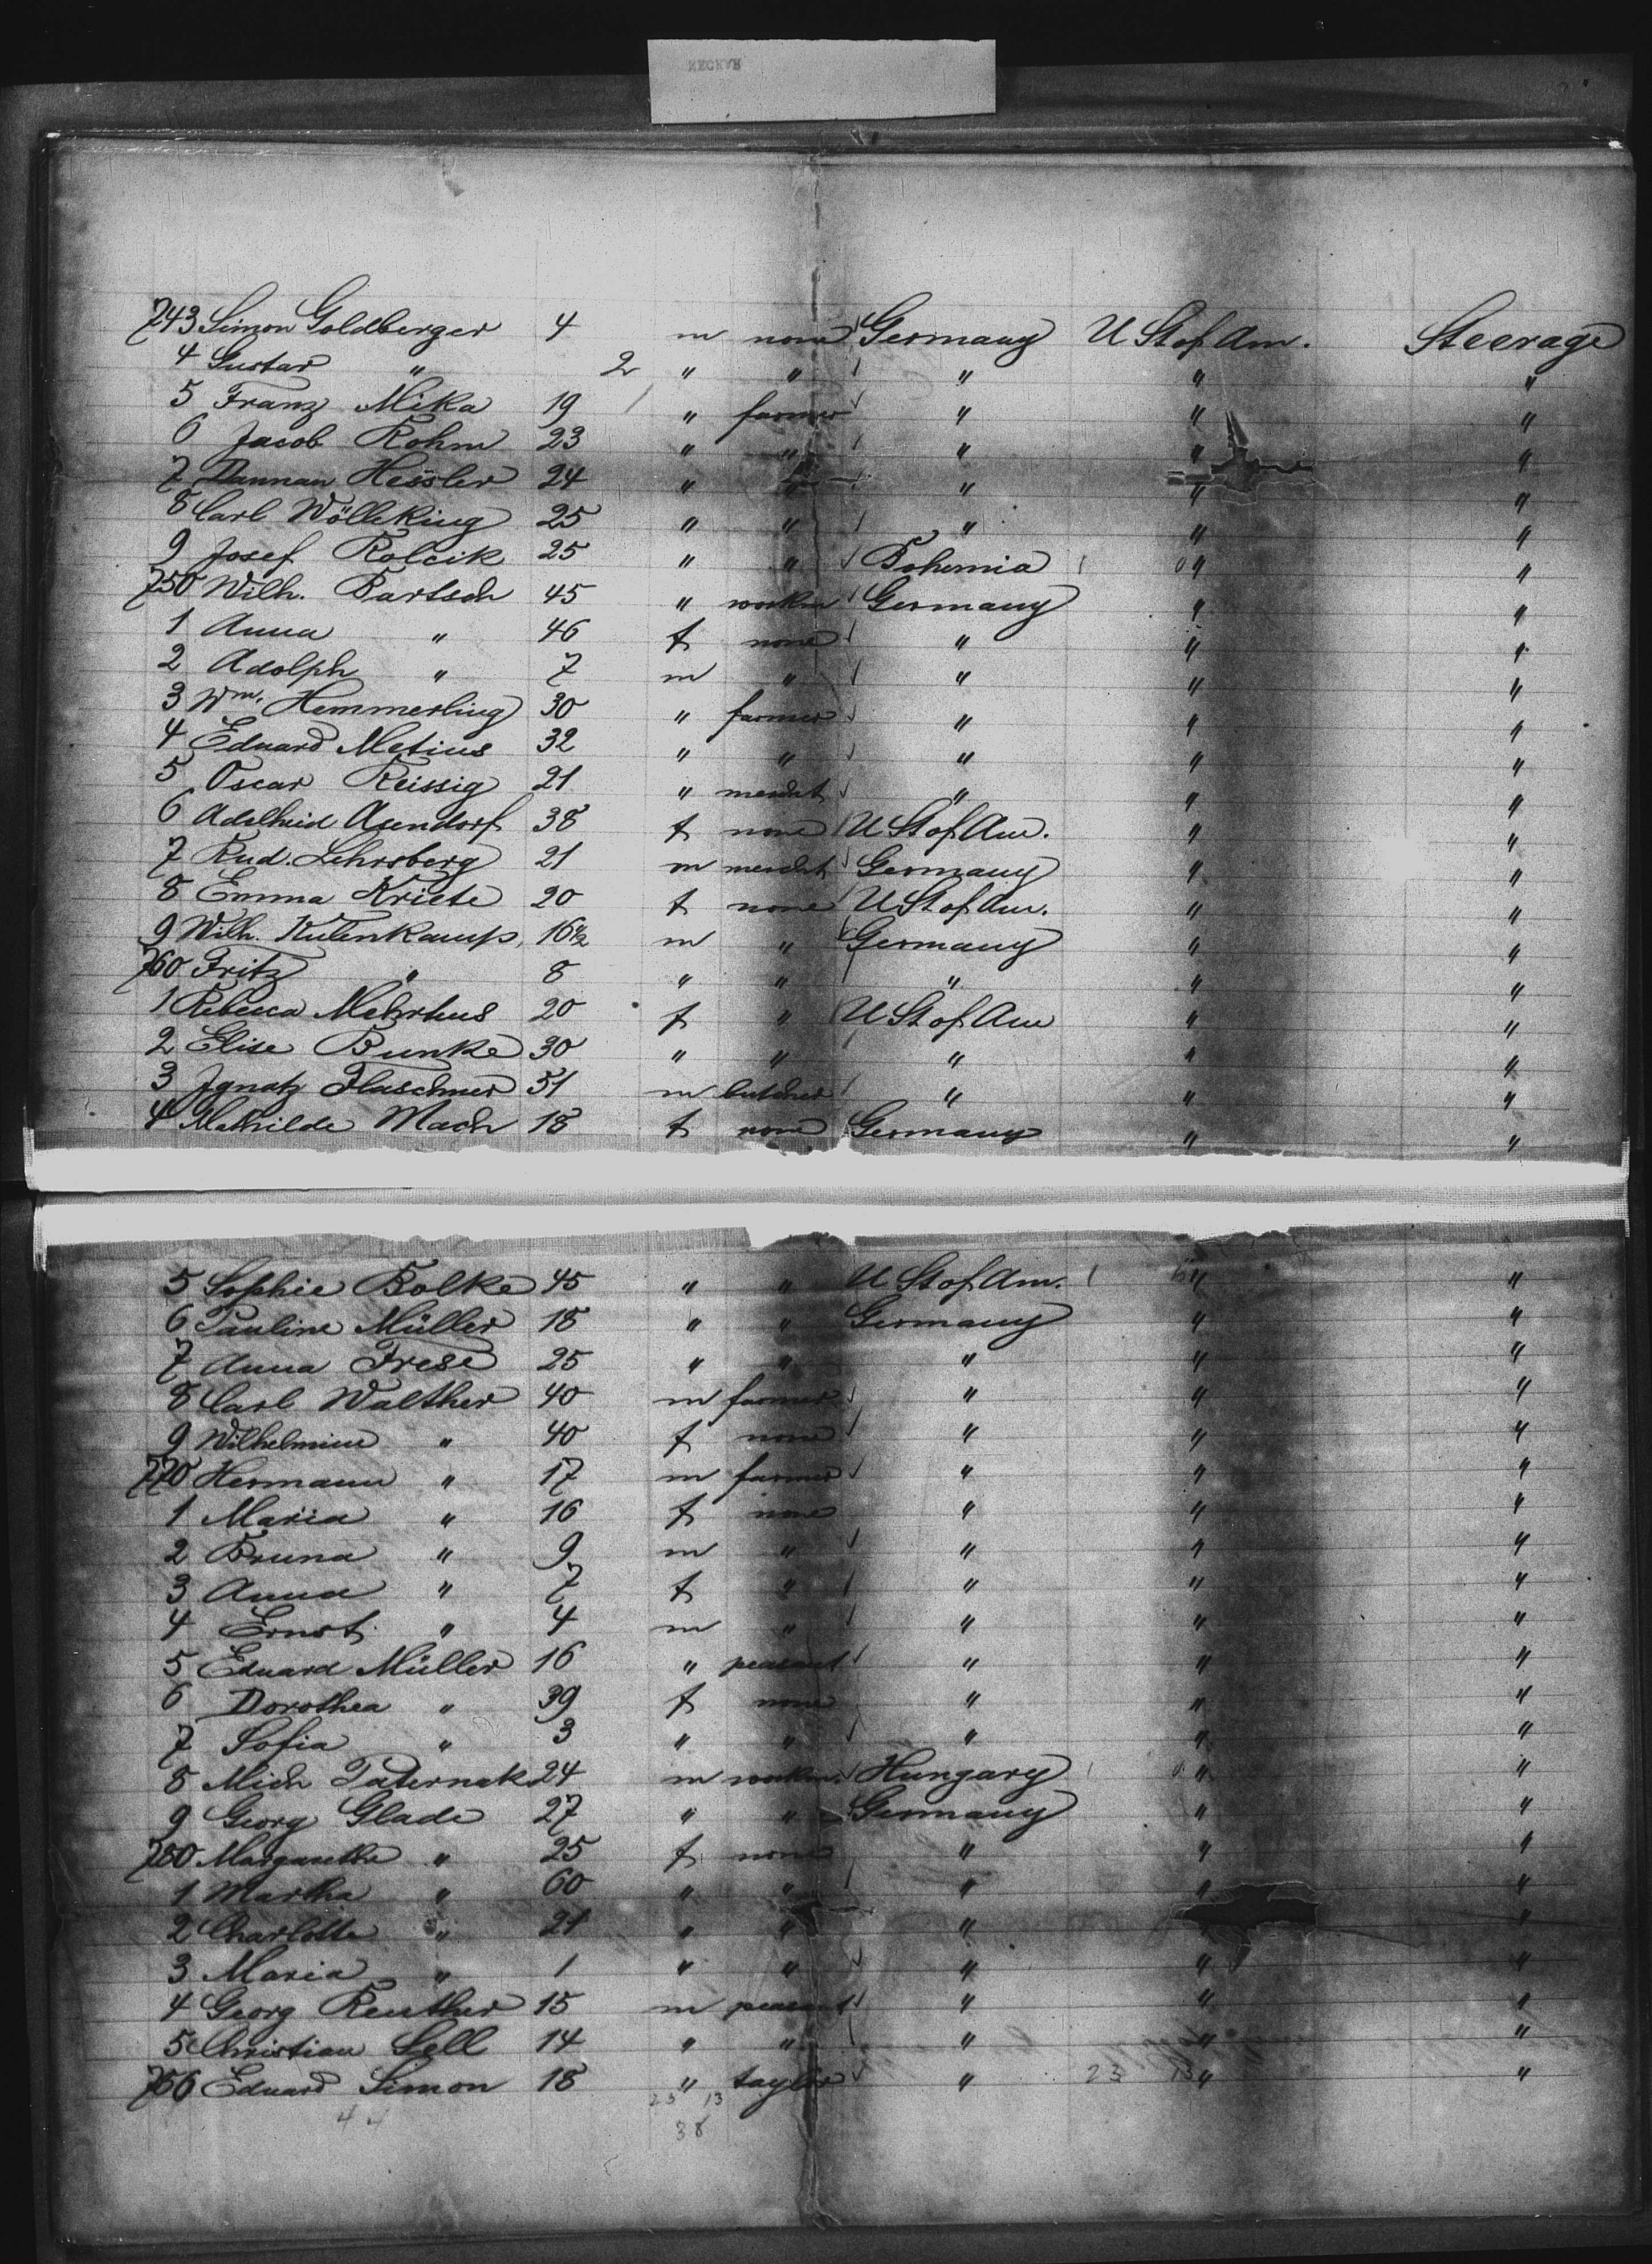 743 Simon Goldberger 4 m none Germany U St of Am. Steerage
4 Gustav " 2 " " " " "
5 Franz Mika 19 " farmer " " "
6 Jacob Rohm 23 " " " " "
7 Hessler 24 " " " " "
8 Carl Wölleking 25 " " " " "
9 Josef Rolcik 25 " " Bohemia " "
750 Wilh. Bartsch 45 " workm Germany " "
1 Anna " 46 f none " " "
2 Adolph " 7 m " " " "
3 Wm. Hemmerling 30 " farmer " " "
4 Eduard Metius 32 " " " " "
5 Oscar Reissig 21 " mercht " " "
6 Adelheid Asendorf 38 f none U St of Am. " "
7 Rud. Lehrsberg 21 m mercht Germany " "
8 Emma Kriete 20 f none U St of Am. " "
9 Wilh. Kulenkamp, 16 1/2 m " Germany " "
760 Fritz " 8 " " " " "
1 Rebecca Mehrtens 20 f " U St of Am " "
2 Elise Bunke 30 " " " " "
3 Ignatz Flaschner 51 m butcher " " "
4 Mathilde Mach 18 f none Germany " "
5 Sophie Bolke 45 " " U St of Am. " "
6 Pauline Müller 18 " " Germany " "
7 Anna Frese 25 " " " " "
8 Carl Walther 40 m farmer " " "
9 Wilhelmine " 40 f none " " "
770 Hermann " 17 m farmer " " "
1 Maria " 16 f none " " "
2 Bruna " 9 m " " " "
3 Anna " 7 f " " " "
4 Ernst " 4 m " " " "
5 Eduard Müller 16 " peasant " " "
6 Dorothea " 39 f none " " "
7 Sofia " 3 " " " " "
8 Mich Paternak 24 m workm. Hungary " "
9 Georg Glade 27 " " Germany " "
780 Margarethe " 25 f none " " "
1 Martha " 60 " " " " "
2 Charlotte " 21 " " " " "
3 Maria " 1 " " " " "
4 Georg Reuther 15 m peasant " " "
5 Christian Sell 14 " " " " "
786 Eduard Simon 18 " taylor " 23 13 " "
44 23 13
38